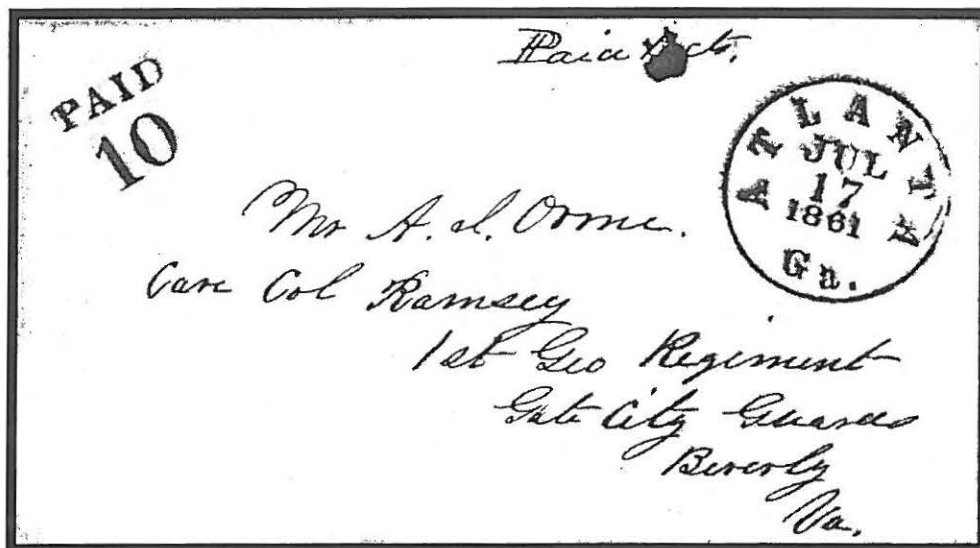 Paid cts.
PAID
10
ATLANTA
JUL
17
1861
Ga.
Mr A. S. Orme.
Care Col Ramsey
1st Geo Regiment
Gate City Guards
Beverly
Va.